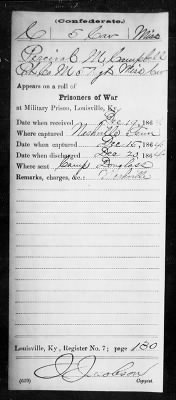 (Confederate.)
C 5 Cav Miss
Percival M Campbell
Co C 5 Regt Miss Cav
Appears on a roll of
Prisoners of War
at Military Prison, Louisville, Ky.
Date when received Dec 19, 1864
Where captured Nashville Tenn
Date when captured Dec 15, 1864
Date when discharged Dec 20, 1864
Where sent Camp Douglass
Remarks, charges, &c.: Nashville
Louisville, Ky., Register No. 7; page 130
(639) Copyist.